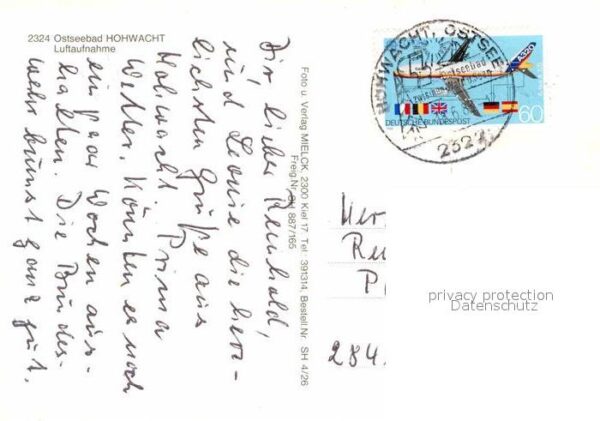 2324 Ostseebad HOHWACHT
Luftaufnahme
Dir, lieber Reinhold,
und Leonie die herz-
lichsten Grüße aus
Hohwacht. Prima
Wetter. Könnten es noch
ein paar Wochen aus-
halten. Die Bundes-
wehr brummt ganz gut.
Foto u. Verlag MIELCK, 2300 Kiel 17, Tel. 391314, Bestell.Nr. SH 4/26
Freig.Nr. SH 887/165
HOHWACHT, OSTSEE
2324
A320
60
DEUTSCHE BUNDESPOST
Her
Re
P
284
privacy protection
Datenschutz